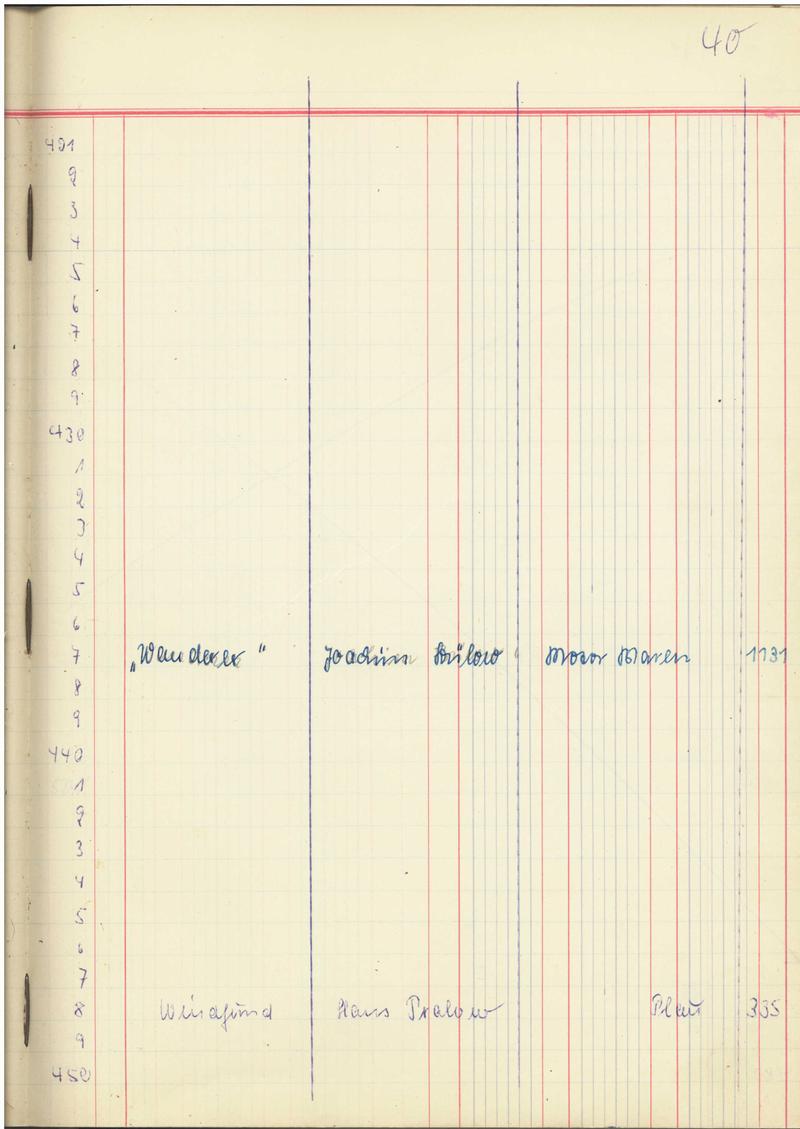 40
421
2
3
4
5
6
7
8
9
430
1
2
3
4
5
6
7 „Wanderer“ Joachim Bülow Motor Maren 1131
8
9
440
1
2
3
4
5
6
7
8 Windhund Hans Pralow Plau 335
9
450